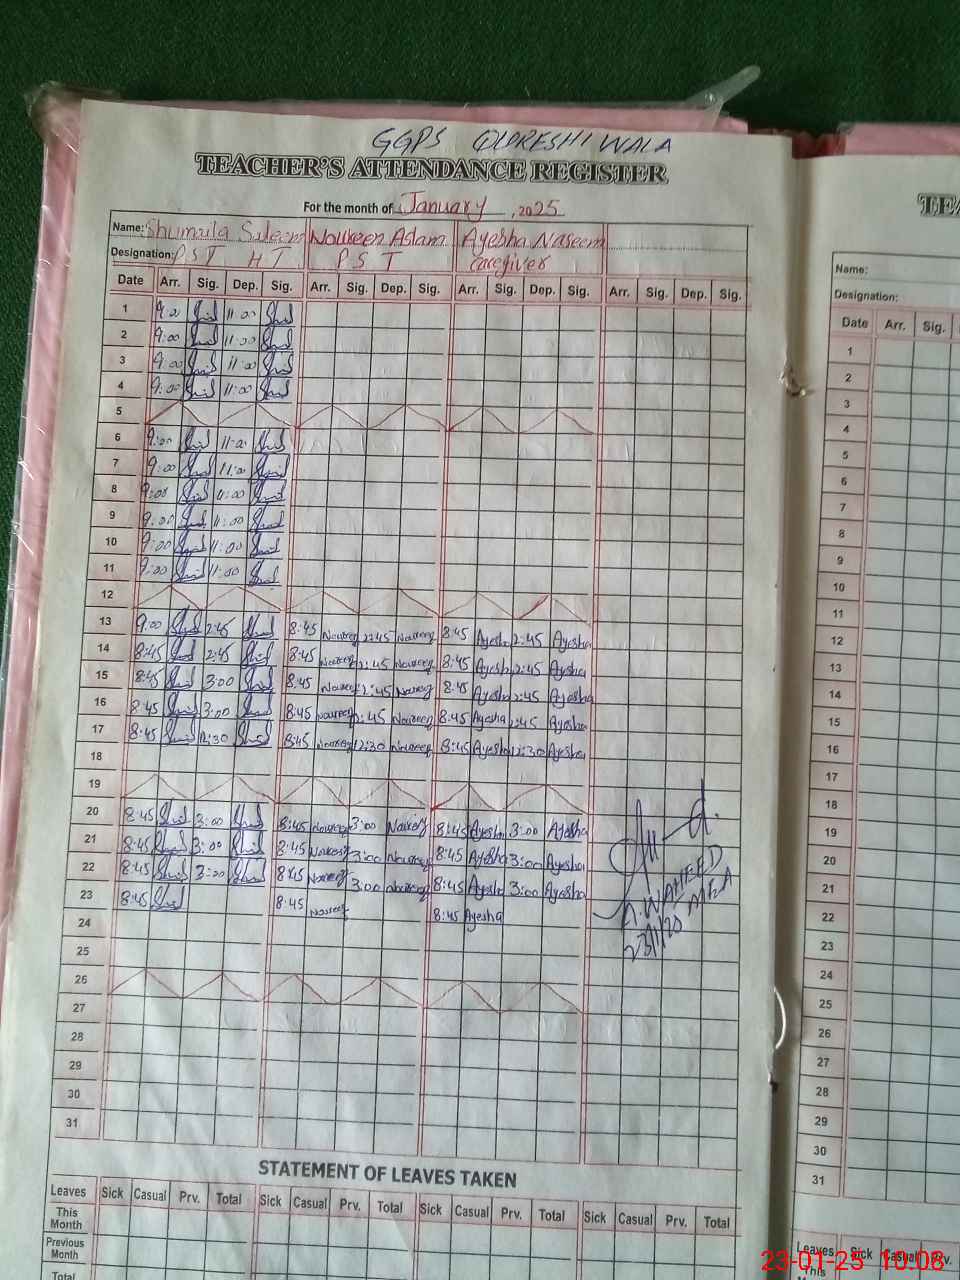 GGPS QURESHI WALA
TEACHER'S ATTENDANCE REGISTER
For the month of January, 2025
Name: Shumaila Saleem Noureen Aslam Ayesha Naseem
Designation: P S T H T P S T Caregiver
Date Arr. Sig. Dep. Sig. Arr. Sig. Dep. Sig. Arr. Sig. Dep. Sig. Arr. Sig. Dep. Sig.
1 9:00 11:00
2 9:00 11:00
3 9:00 11:00
4 9:00 11:00
5
6 9:00 11:00
7 9:00 11:00
8 9:00 11:00
9 9:00 11:00
10 9:00 11:00
11 9:00 11:00
12
13 9:00 2:45 8:45 Noureen 2:45 Noureen 8:45 Ayesha 2:45 Ayesha
14 8:45 2:45 8:45 Noureen 2:45 Noureen 8:45 Ayesha 2:45 Ayesha
15 8:45 3:00 8:45 Noureen 2:45 Noureen 8:45 Ayesha 2:45 Ayesha
16 8:45 3:00 8:45 Noureen 2:45 Noureen 8:45 Ayesha 2:45 Ayesha
17 8:45 12:30 8:45 Noureen 12:30 Noureen 8:45 Ayesha 12:30 Ayesha
18
19
20 8:45 3:00 8:45 Noureen 3:00 Noureen 8:45 Ayesha 3:00 Ayesha
21 8:45 3:00 8:45 Noureen 3:00 Noureen 8:45 Ayesha 3:00 Ayesha
22 8:45 3:00 8:45 Noureen 3:00 Noureen 8:45 Ayesha 3:00 Ayesha
23 8:45 8:45 Noureen 8:45 Ayesha
A. WAHEED MEA
24
25
26
27
28
29
30
31
STATEMENT OF LEAVES TAKEN
Leaves Sick Casual Prv. Total Sick Casual Prv. Total Sick Casual Prv. Total Sick Casual Prv. Total
This Month
Previous Month
Total
Name:
Designation:
Date Arr. Sig.
1
2
3
4
5
6
7
8
9
10
11
12
13
14
15
16
17
18
19
20
21
22
23
24
25
26
27
28
29
30
31
Leaves Sick Casual Prv.
This
23-01-25 10:08